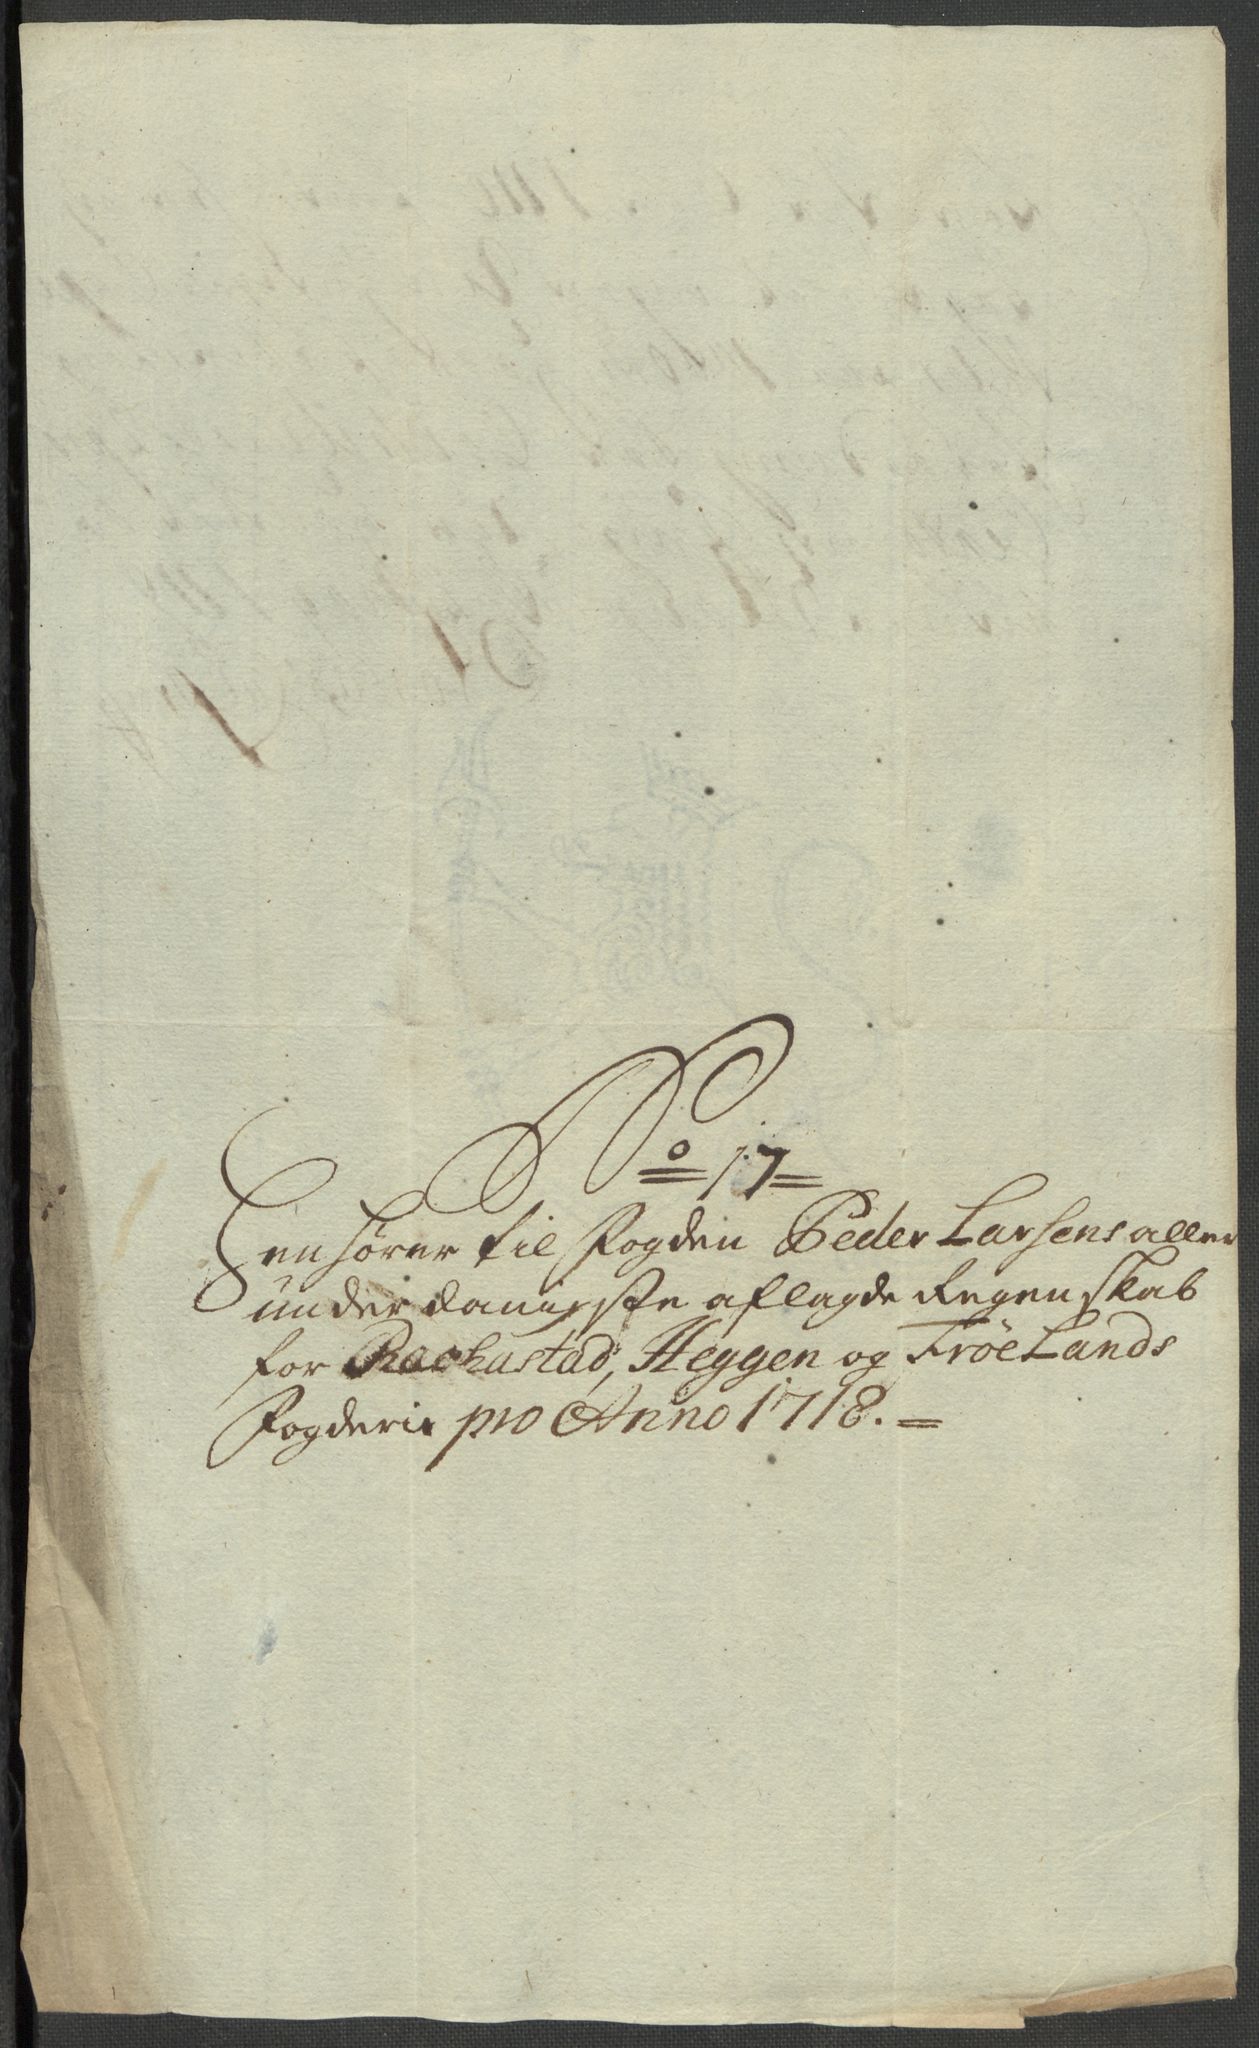 No 17
Henhører til Fogden Peder Larsens aller
underdanigste aflagde Regenskab
for Rachustad, Heggen og FrøeLands
Fogderie pro Anno 1718.